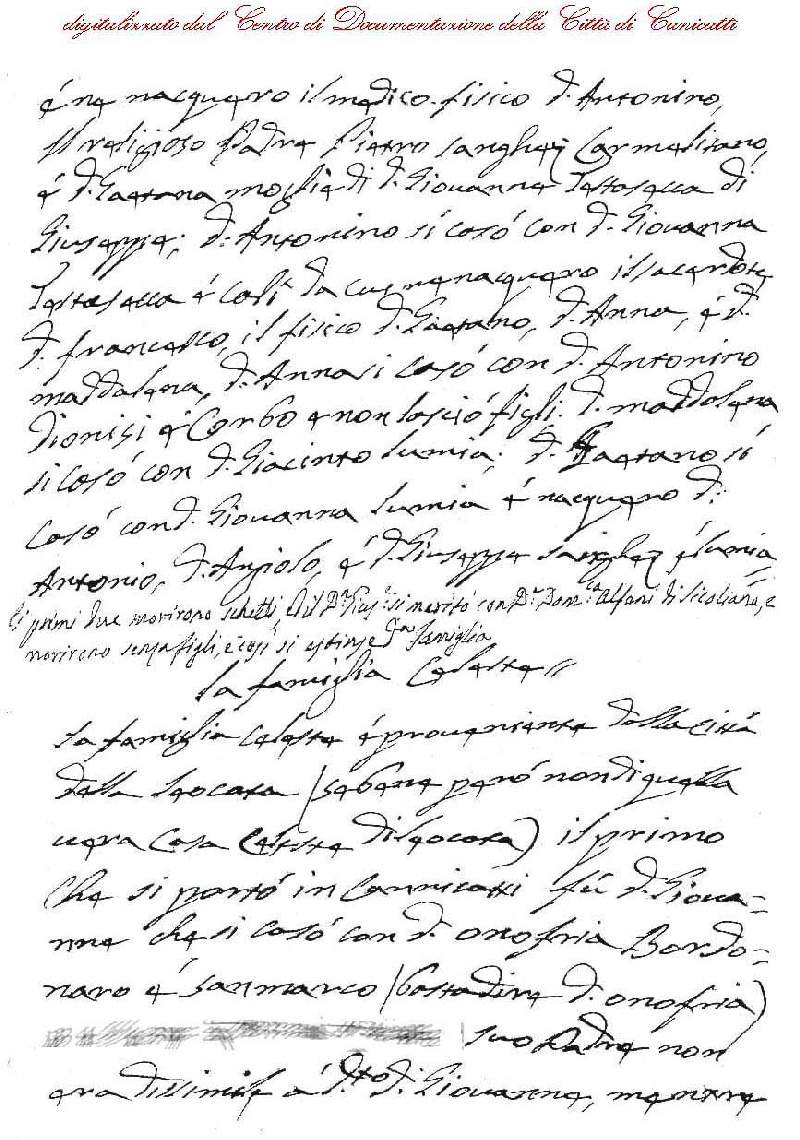 digitalizzato dal Centro di Documentazione della Città di Canicattì
é ne nacquero il medico fisico d. Antonino,
il religioso Padre Pietro sanghez Carmelitano,
é d. Gaetana moglie di d. Giovanne Testasecca di
Giuseppe; d. Antonino si casó con d. Giovanna
Testasecca é Calì da cui ne nacquero il sacerdote
d. francesco, il fisico d. Gaetano, d. Anna, é d.
maddalena, d. Anna si casó con d. Antonino
Dionisi é Corbo e non lasció figli. d. maddalena
si casó con d. Giacinto lumia; d. Gaetano si
casó con d. Giovanna lumia é nacquero d:
Antonio, d. Angiolo, é d. Giuseppe sanghez é lumia,
li primi due morirono schetti, ed il Dn. Gius.e si maritó con Da. Dom.ca alfani di Sicoliana, e
morirono senza figli, e così si estinse da. famiglia
la famiglia Celeste //
la famiglia Celeste é proveniente dalla città
della leocata (sebene peró non di quella
vera Casa Celeste di leocata) il primo
che si portó in Cannicatti fù d. Giova=
nne che si casó con d. onofria Bordo=
naro é sanmarco (bastadire d. onofria)
suo Padre non
era dissimile á d.to d. Giovanne, mentre